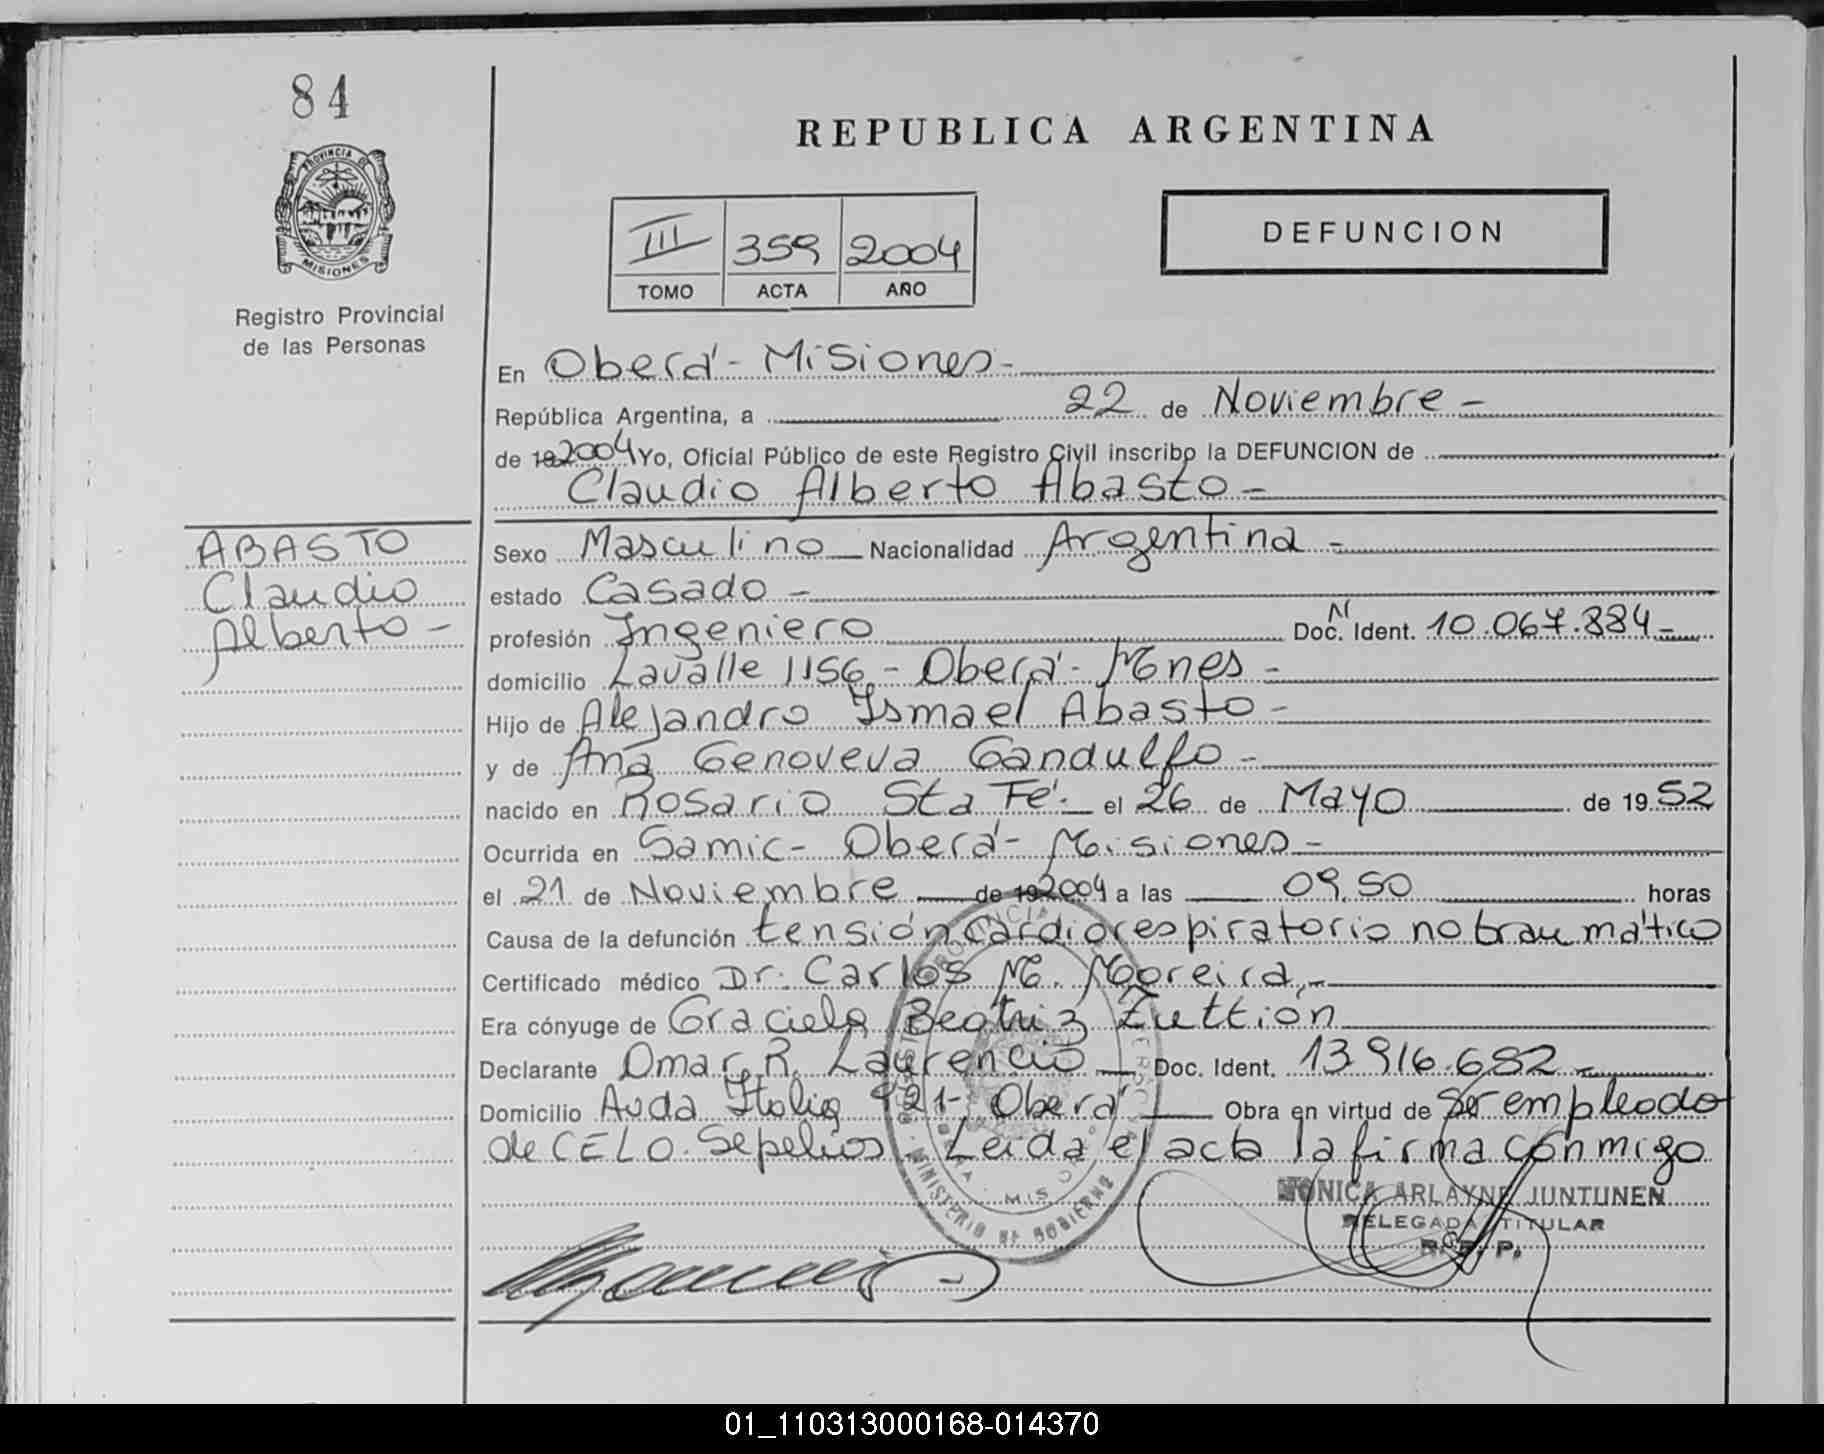 84
REPUBLICA ARGENTINA
PROVINCIA DE
MISIONES
III 359 2004
TOMO ACTA AÑO
DEFUNCION
Registro Provincial
de las Personas
En Oberá - Misiones -
República Argentina, a 22 de Noviembre -
de 19 2004 Yo, Oficial Público de este Registro Civil inscribo la DEFUNCION de
Claudio Alberto Abasto -
ABASTO
Claudio
Alberto -
Sexo Masculino Nacionalidad Argentina -
estado Casado -
profesión Ingeniero Doc. N Ident. 10.067.884 -
domicilio Lavalle 1156 - Oberá - Mnes -
Hijo de Alejandro Ismael Abasto -
y de Ana Genoveva Gandulfo -
nacido en Rosario Sta Fé - el 26 de Mayo de 1952
Ocurrida en Samic - Oberá - Misiones -
el 21 de Noviembre de 19 2004 a las 09,50 horas
Causa de la defunción tensión cardiorespiratorio no traumático
Certificado médico Dr. Carlos M. Moreira, -
Era cónyuge de Graciela Beatriz Zuttión
Declarante Omar R. Laurencio Doc. Ident. 13.916.682 -
Domicilio Avda Italia 921 - Oberá Obra en virtud de Ser empleado
de CELO. Sepelios. Leida el acta la firma conmigo
MONICA ARLAYNE JUNTUNEN
DELEGADA TITULAR
R. P. P.
MINISTERIO DE GOBIERNO
01_110313000168-014370